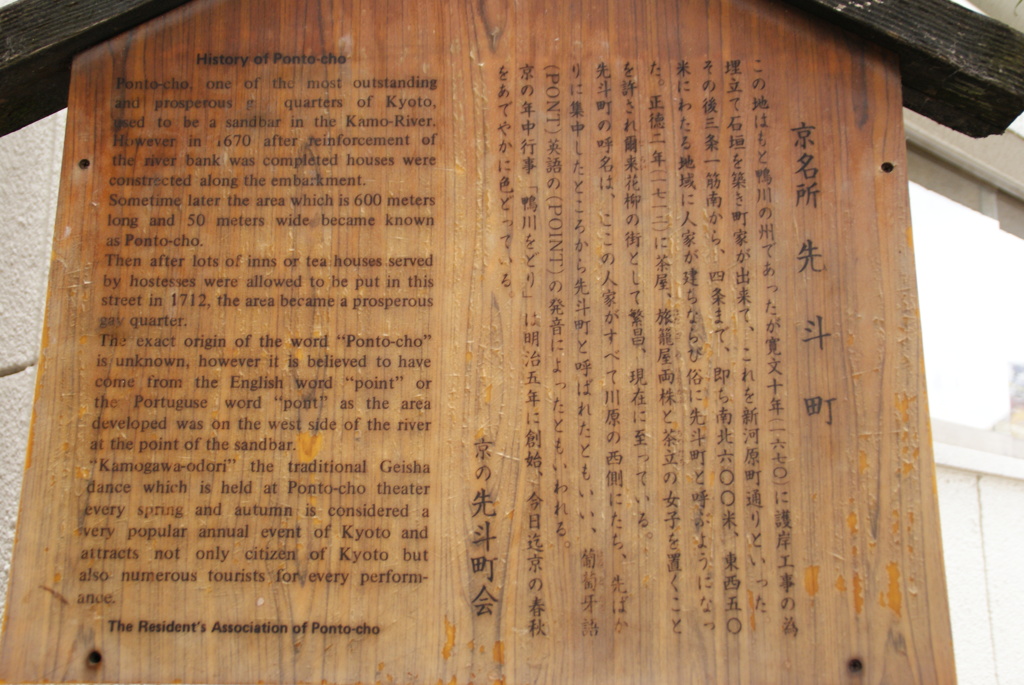 History of Ponto-cho
Ponto-cho, one of the most outstanding
and prosperous g quarters of Kyoto,
used to be a sandbar in the Kamo-River.
However in 1670 after reinforcement of
the river bank was completed houses were
constrected along the embarkment.
Sometime later the area which is 600 meters
long and 50 meters wide became known
as Ponto-cho.
Then after lots of inns or tea houses served
by hostesses were allowed to be put in this
street in 1712, the area became a prosperous
gay quarter.
The exact origin of the word “Ponto-cho”
is unknown, however it is believed to have
come from the English word “point” or
the Portuguse word “pont” as the area
developed was on the west side of the river
at the point of the sandbar.
“Kamogawa-odori” the traditional Geisha
dance which is held at Ponto-cho theater
every spring and autumn is considered a
very popular annual event of Kyoto and
attracts not only citizen of Kyoto but
also numerous tourists for every perform-
ance.
The Resident's Association of Ponto-cho
京名所 先斗町
この地はもと鴨川の州であったが寛文十年(一六七〇)に護岸工事の為
埋立て石垣を築き町家が出来て、これを新河原町通りといった
その後三条一筋南から、四条まで、即ち南北六〇〇米、東西五〇
米にわたる地域に人家が建ちならび俗に先斗町と呼ぶようになっ
た。正徳二年(一七一二)に茶屋、旅籠屋両株と茶立の女子を置くこと
を許され爾来花柳の街として繁昌、現在に至っている。
先斗町の呼名は、ここの人家がすべて川原の西側にたち、先ばか
りに集中したところから先斗町と呼ばれたともいい、葡萄牙語
(PONT)英語の(POINT)の発音によったともいわれる。
京の年中行事「鴨川をどり」は明治五年に創始、今日迄京の春秋
をあでやかに色どっている。
京の先斗町会